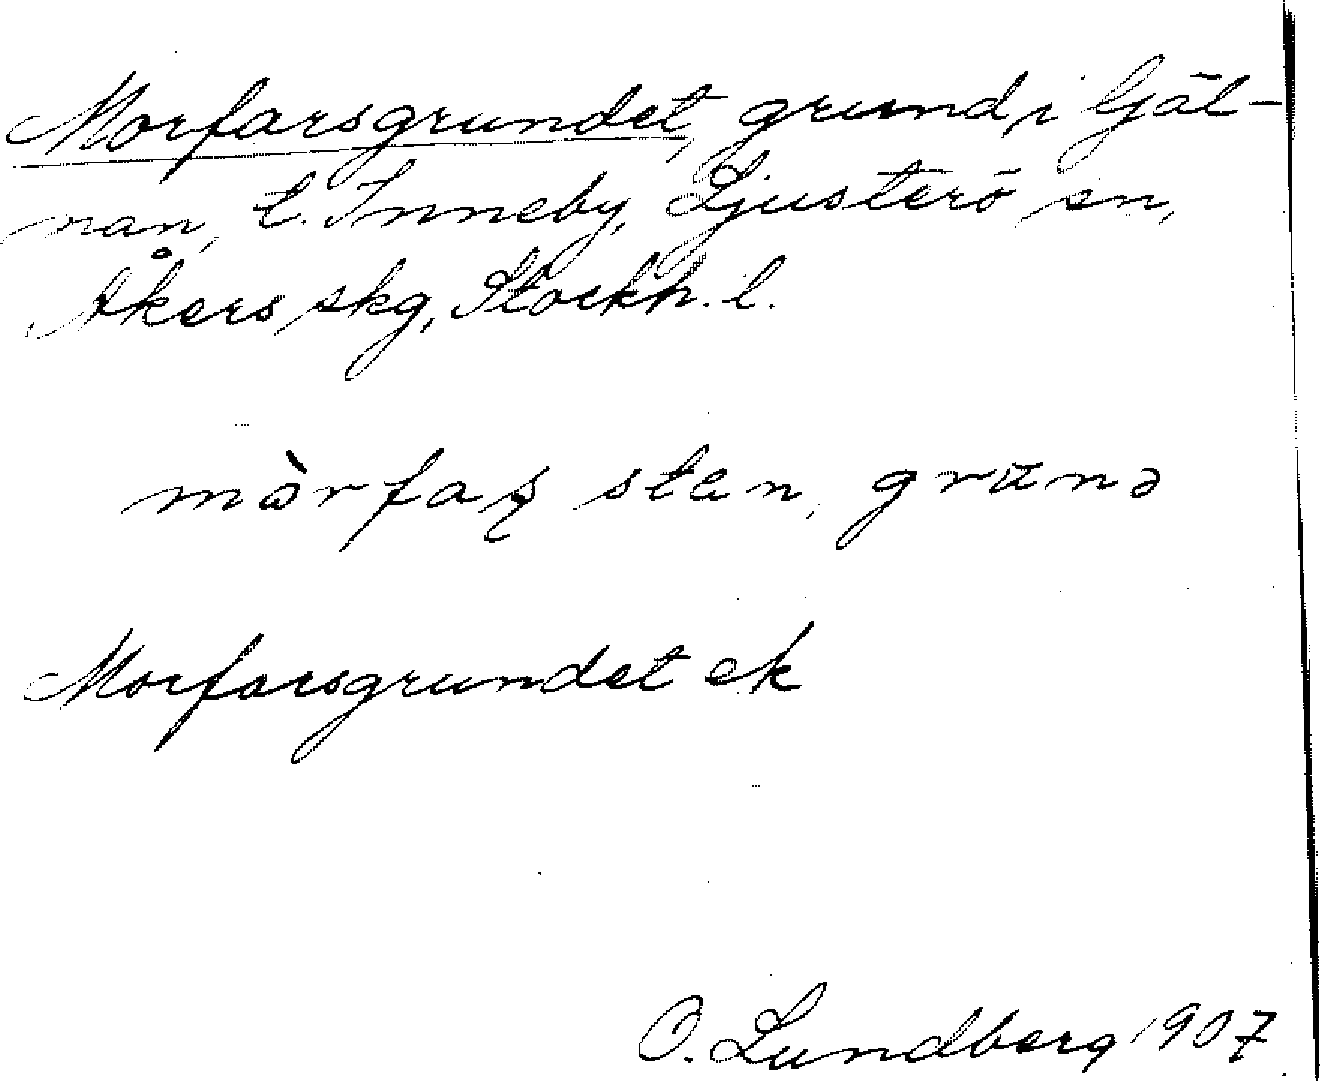 Morfarsgrundet, grund i Gäl-
nan, L. Inneby, Ljusterö sn,
Åkers skg, Stockh. l.
mòrfaʂ sten, grūnə
Morfarsgrundet ek
O. Lundberg 1907